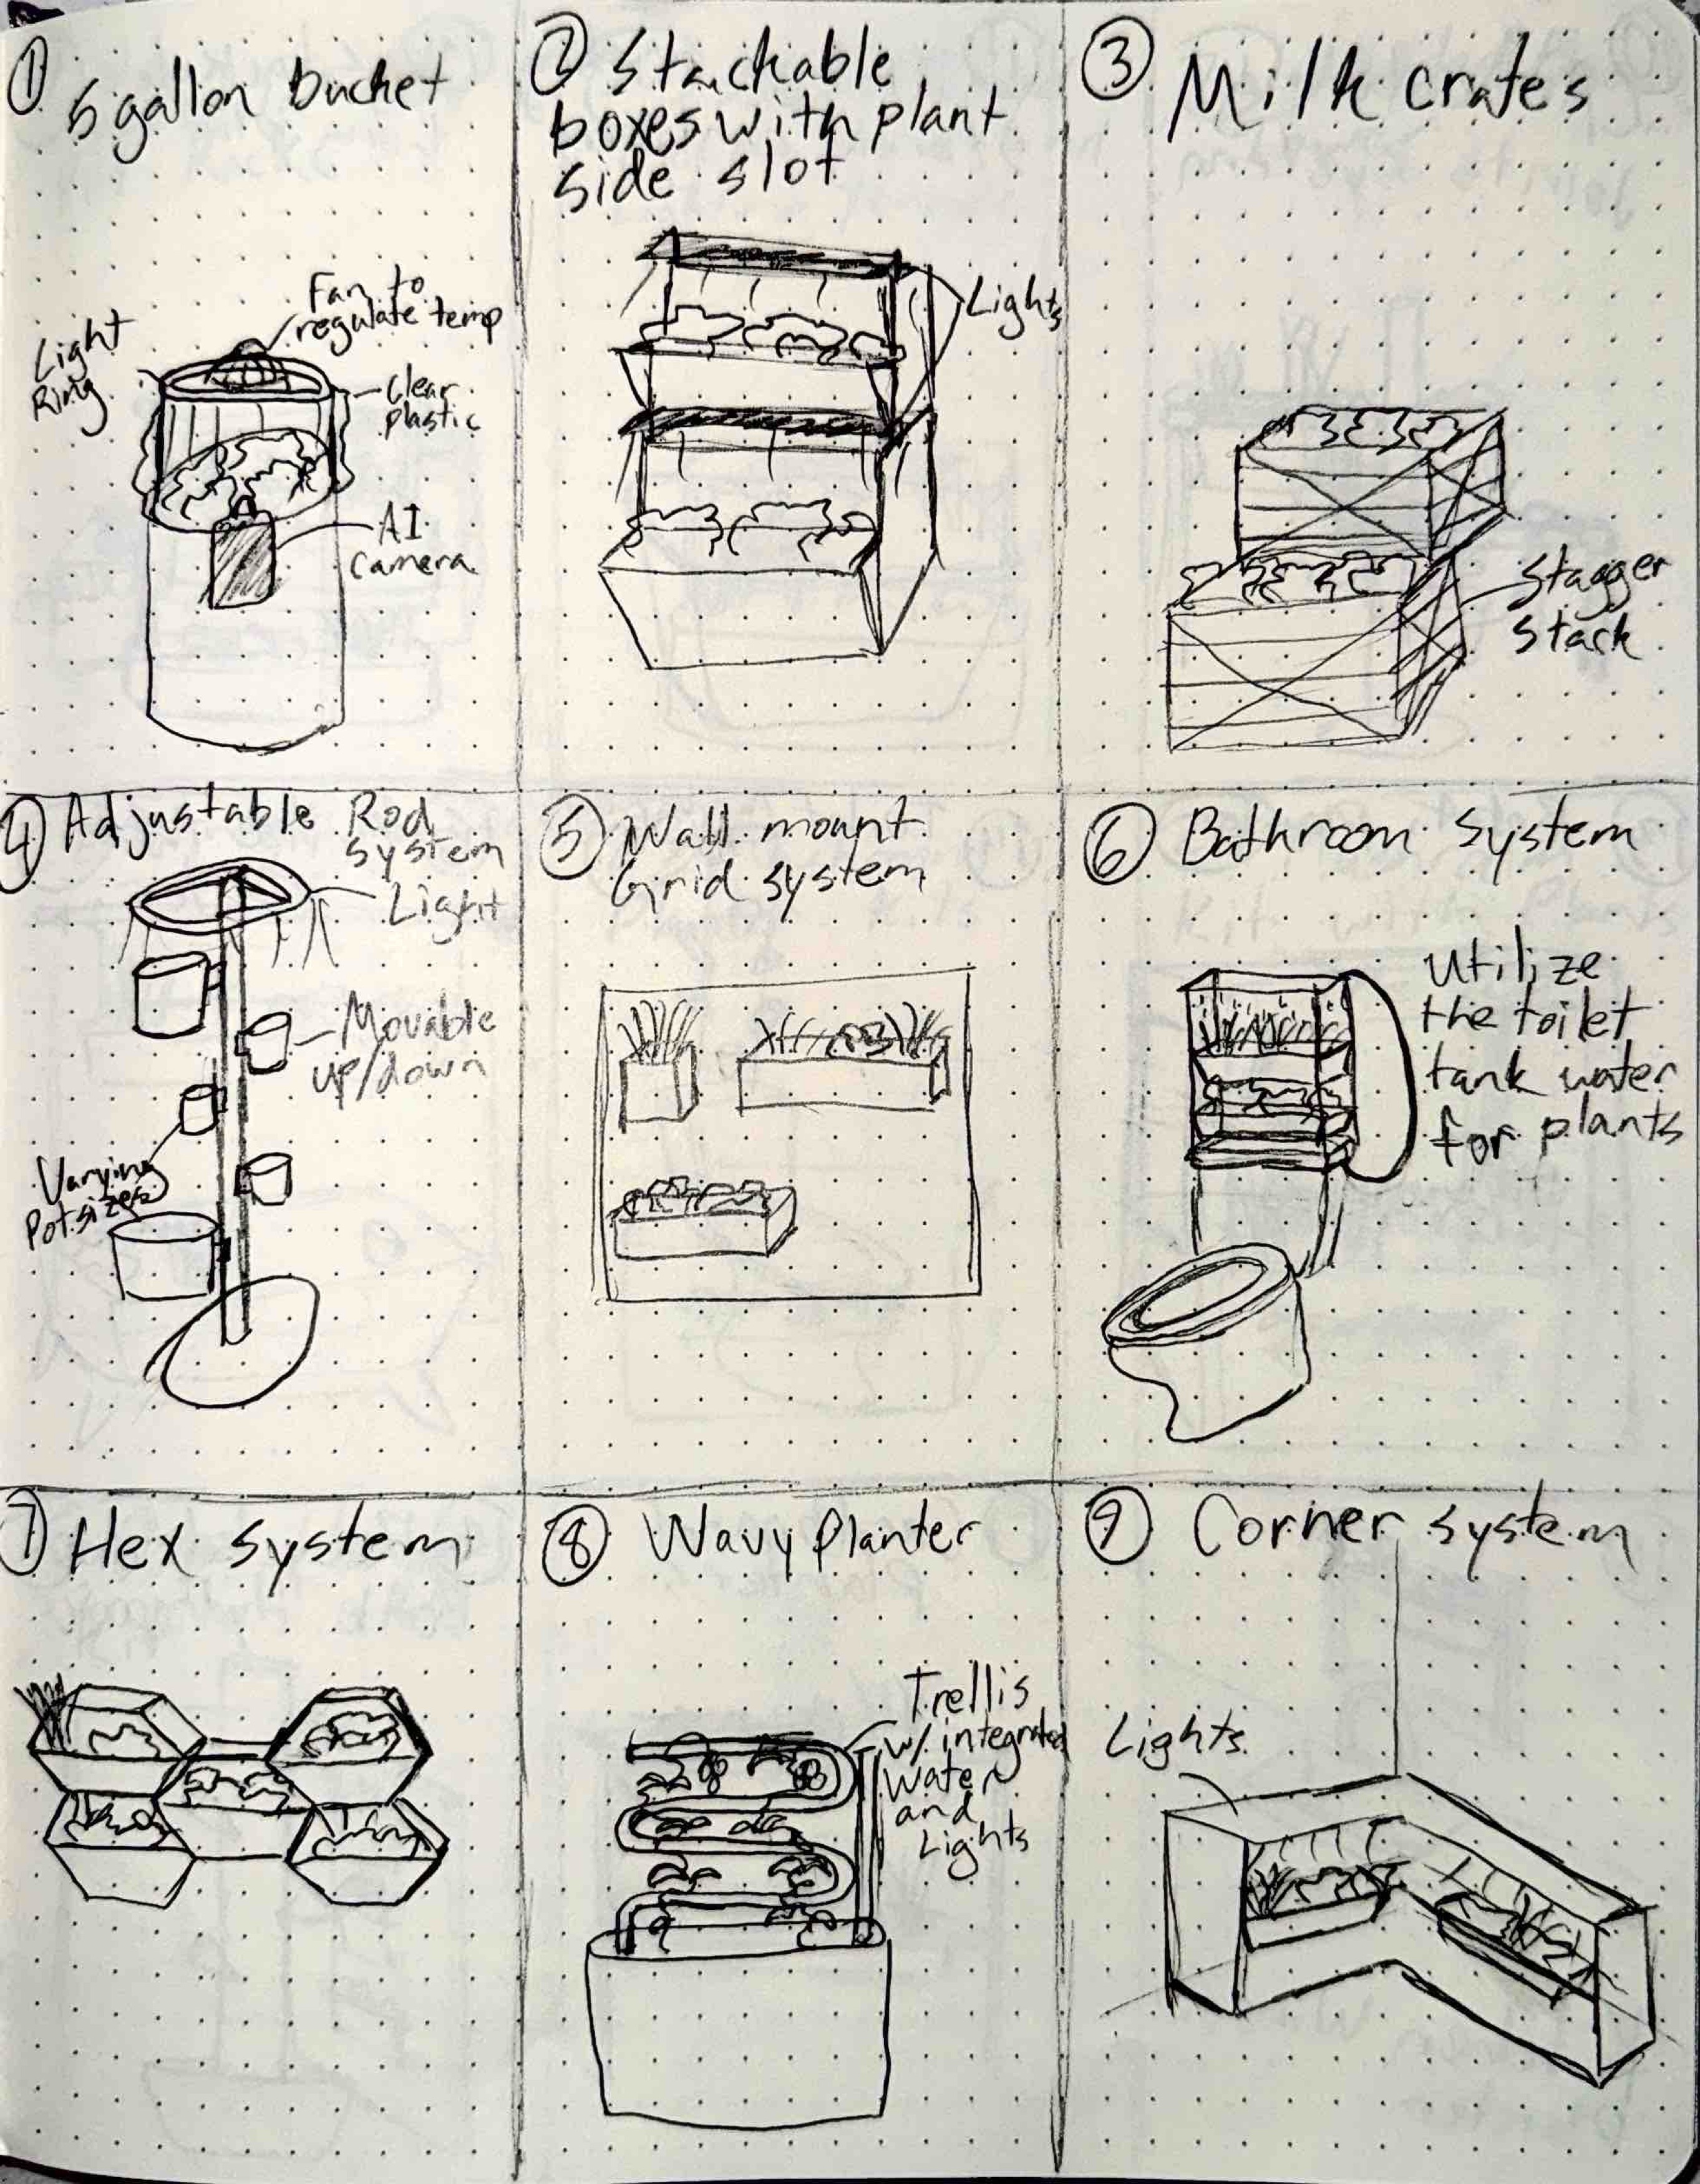 ① 5 gallon bucket
Fan to
regulate temp
Light
Ring
Clear
plastic
AI
camera
② Stackable
boxes with plant
side slot
Lights
③ Milk crates
Stagger
stack
④ Adjustable Rod
system
Light
Movable
up/down
Varying
Pot sizes
⑤ Wall mount
Grid system
⑥ Bathroom system
Utilize
the toilet
tank water
for plants
⑦ Hex system
⑧ Wavy Planter
Trellis
w/ integrated
water
and
Lights
⑨ Corner system
Lights